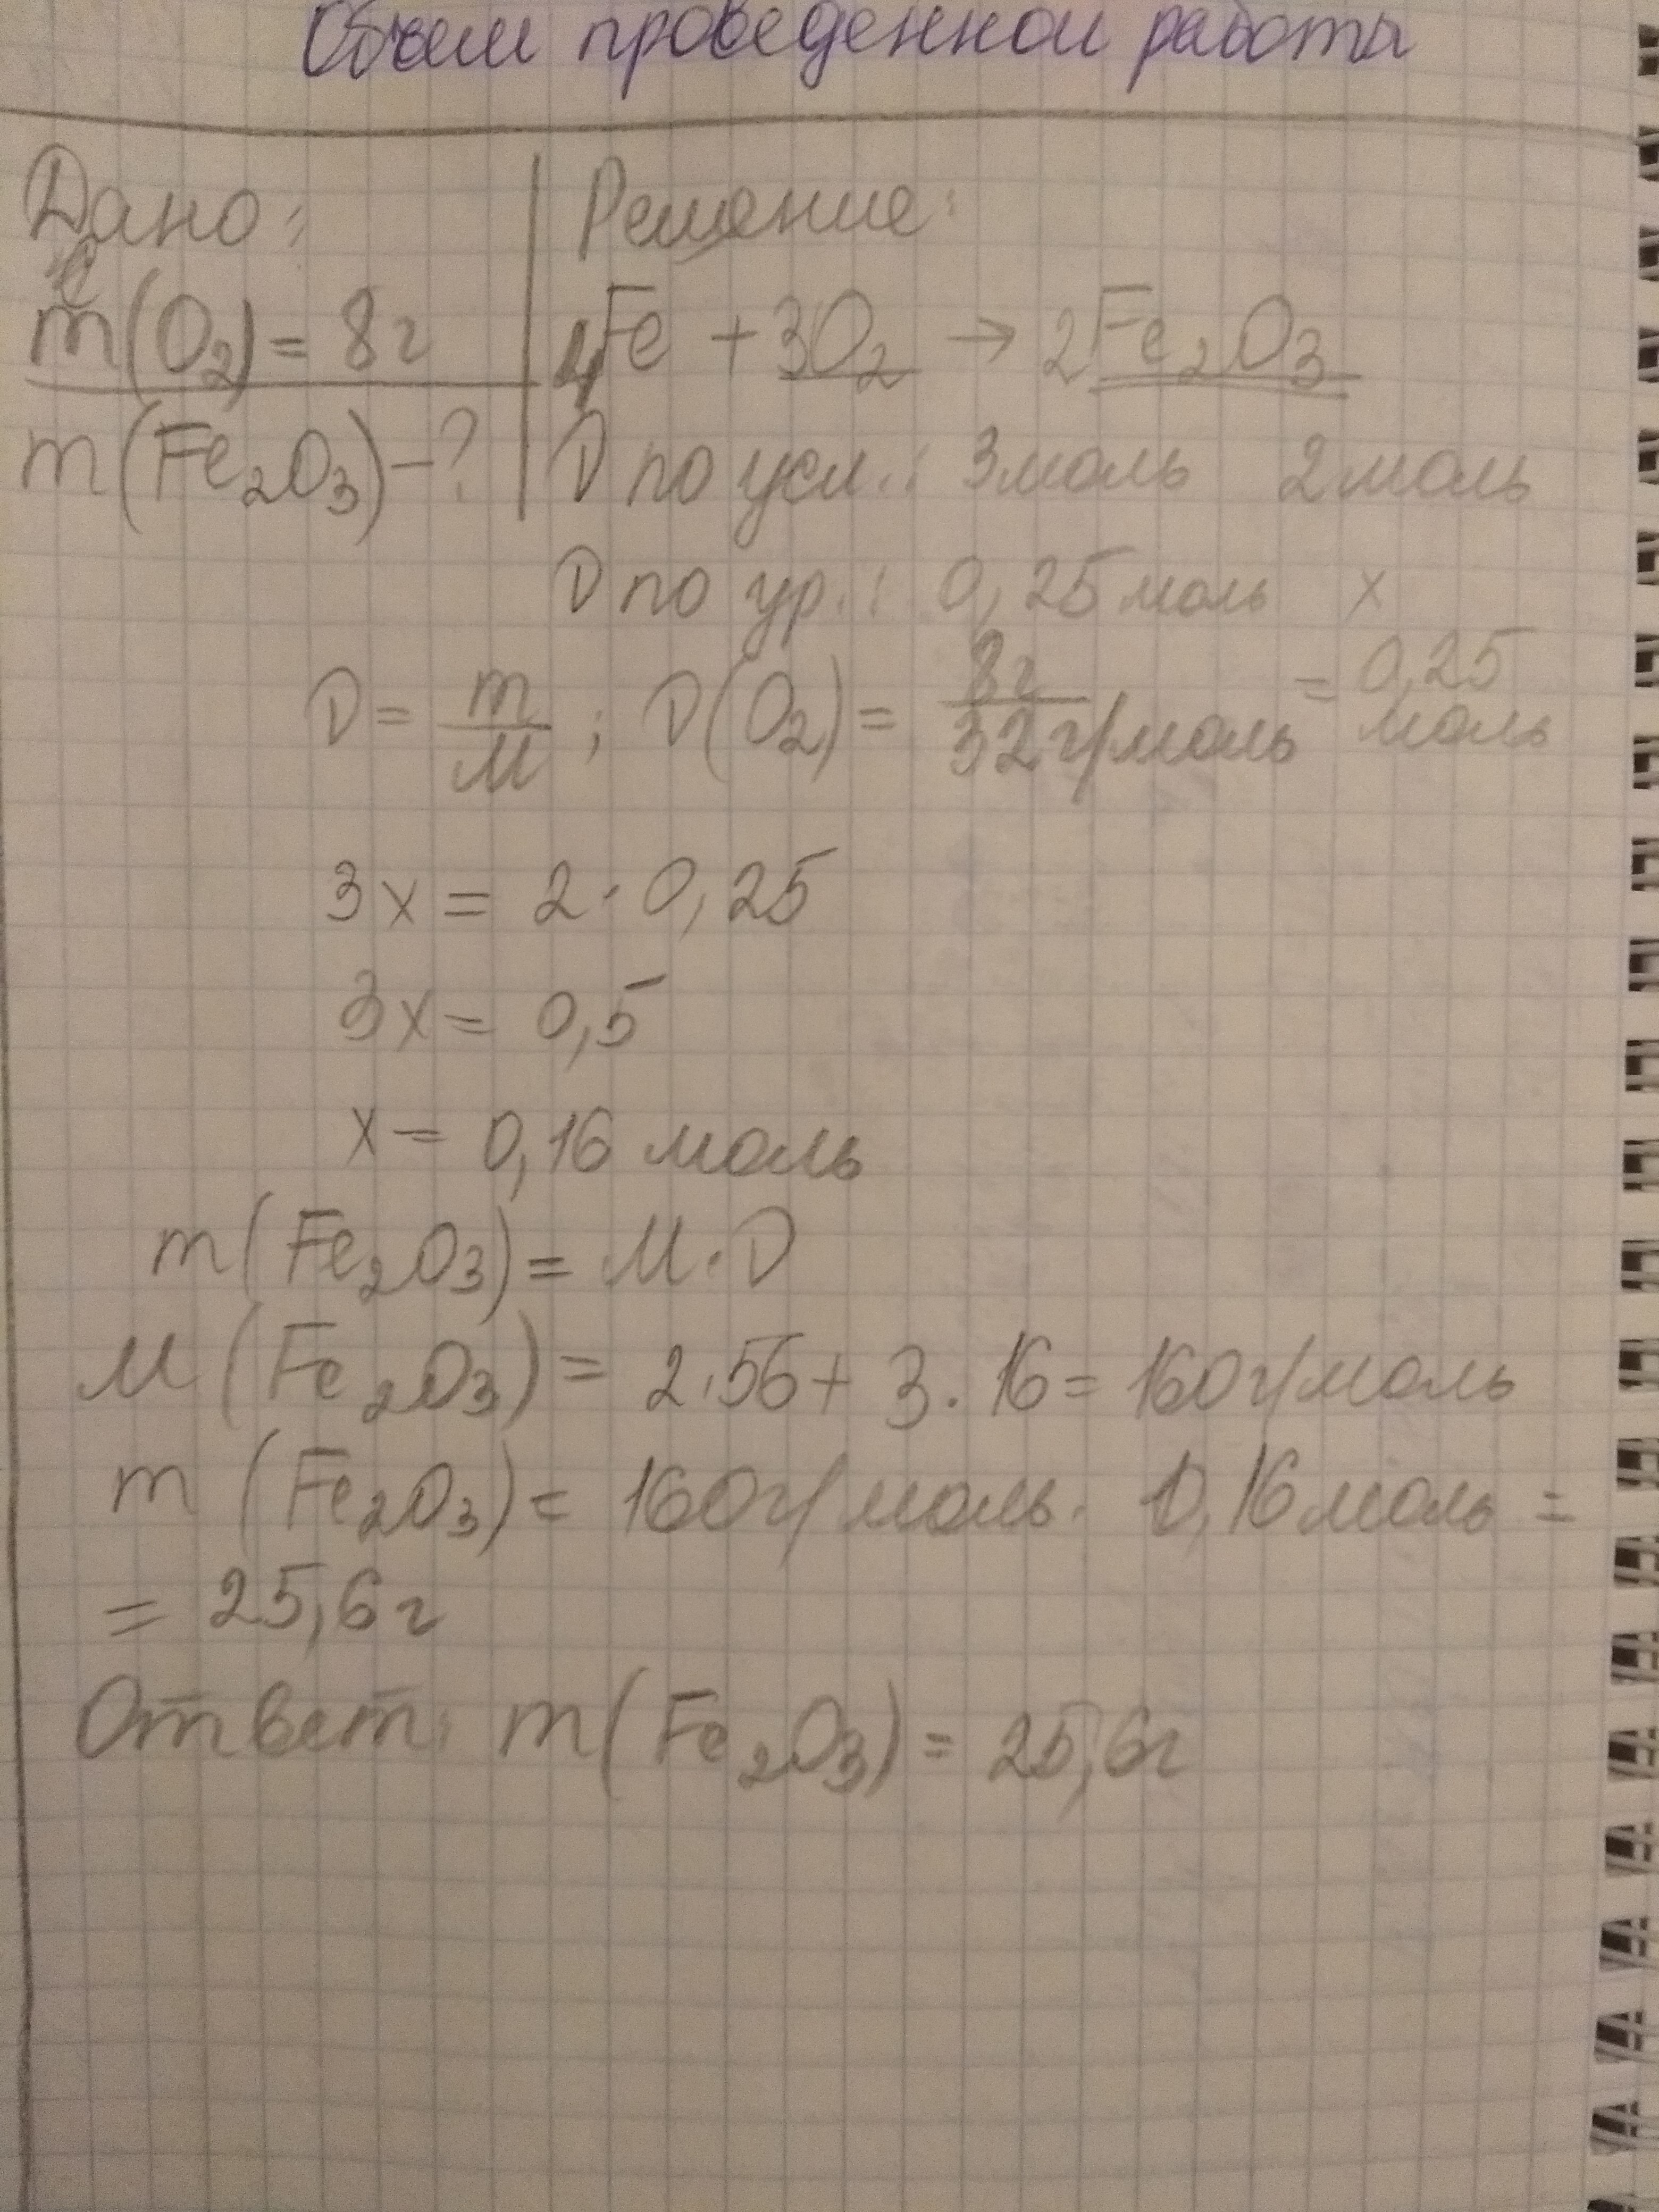 Объем проведенной работы
Дано:
m(O₂) = 8г
m(Fe₂O₃) – ?
Решение:
4Fe + 3O₂ → 2Fe₂O₃
D по усл.: 3моль 2моль
D по ур.: 0,25моль x
D = m/M ; D(O₂) = 8г/32г/моль = 0,25 моль
3x = 2 · 0,25
3x = 0,5
x = 0,16 моль
m(Fe₂O₃) = M · D
M(Fe₂O₃) = 2·56 + 3·16 = 160г/моль
m(Fe₂O₃) = 160г/моль · 0,16моль =
= 25,6г
Ответ: m(Fe₂O₃) = 25,6г